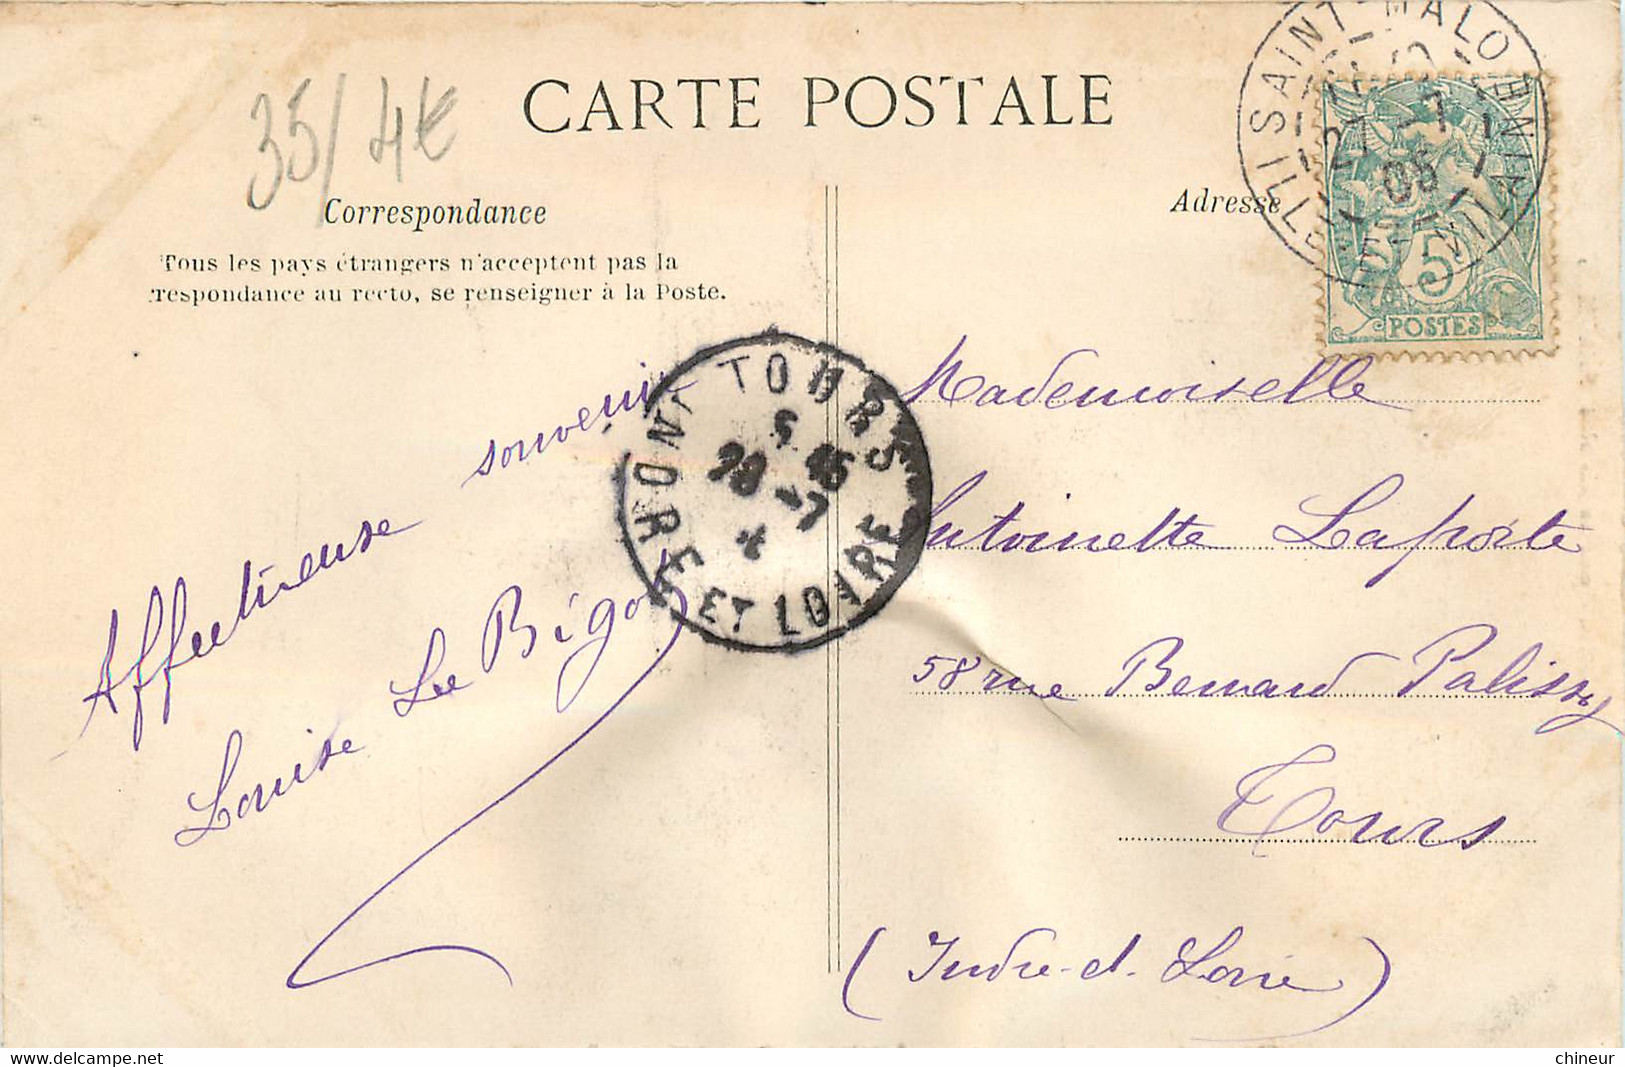 CARTE POSTALE
35/4€
Correspondance
Tous les pays étrangers n'acceptent pas la
respondance au recto, se renseigner à la Poste.
Adresse
SAINT-MALO
ILLE ET VILAINE
27 -7
05
5
POSTES
TOURS
INDRE ET LOIRE
28 -7
Affectueuse souvenir
Louise Le Bigot
Mademoiselle
Antoinette Laporte
58 rue Bernard Palissy
Tours
(Indre-et-Loire)
delcampe.net
chineur